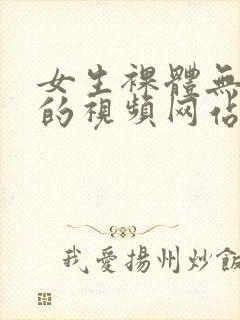 女生裸體無
的視頻网佔
我愛揚州炒飯